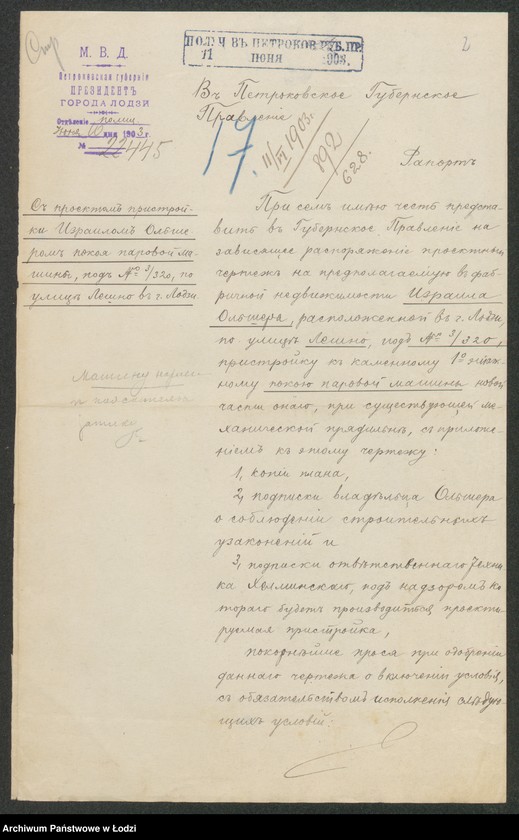 2
М. В. Д.
Петроковская губернія
ПРЕЗИДЕНТЪ
ГОРОДА ЛОДЗИ
Отдѣленіе полиц.
Іюня 10 дня 1903 г.
№ 22445
ПОЛУЧ. ВЪ ПЕТРОКОВ. ГУБ. ПР.
11 ІЮНЯ 1903.
Въ Петроковское Губернское
Правленіе
17.
11/VI 1903 г.
892
628.
Рапортъ
Съ проектомъ пристрой-
ки Израилемъ Ольше-
ромъ покоя паровой ма-
шины, подъ № 3/320, по
улицѣ Лешно въ г. Лодзи.
Машину
При семъ имѣю честь предста-
вить въ Губернское Правленіе на
зависящее распоряженіе проектный
чертежъ на предполагаемую въ фаб-
ричной недвижимости Израиля
Ольшера, расположенной въ г. Лодзи,
по улицѣ Лешно, подъ № 3/320,
пристройку къ каменному 1º этаж-
ному покою паровой машины новой
части онаго, при существующей ме-
ханической прядильнѣ, съ приложе-
ніемъ къ этому чертежу:
1, копіи плана,
2, подписки владѣльца Ольшера
о соблюденіи строительныхъ
узаконеній и
3, подписки отвѣтственнаго техни-
ка Хелминскаго, подъ надзоромъ ко-
тораго будетъ производиться проекти-
руемая пристройка,
покорнѣйше прося при одобреніи
даннаго чертежа о включеніи условія,
съ обязательствомъ исполненія слѣдую-
щихъ условій:
Archiwum Państwowe w Łodzi